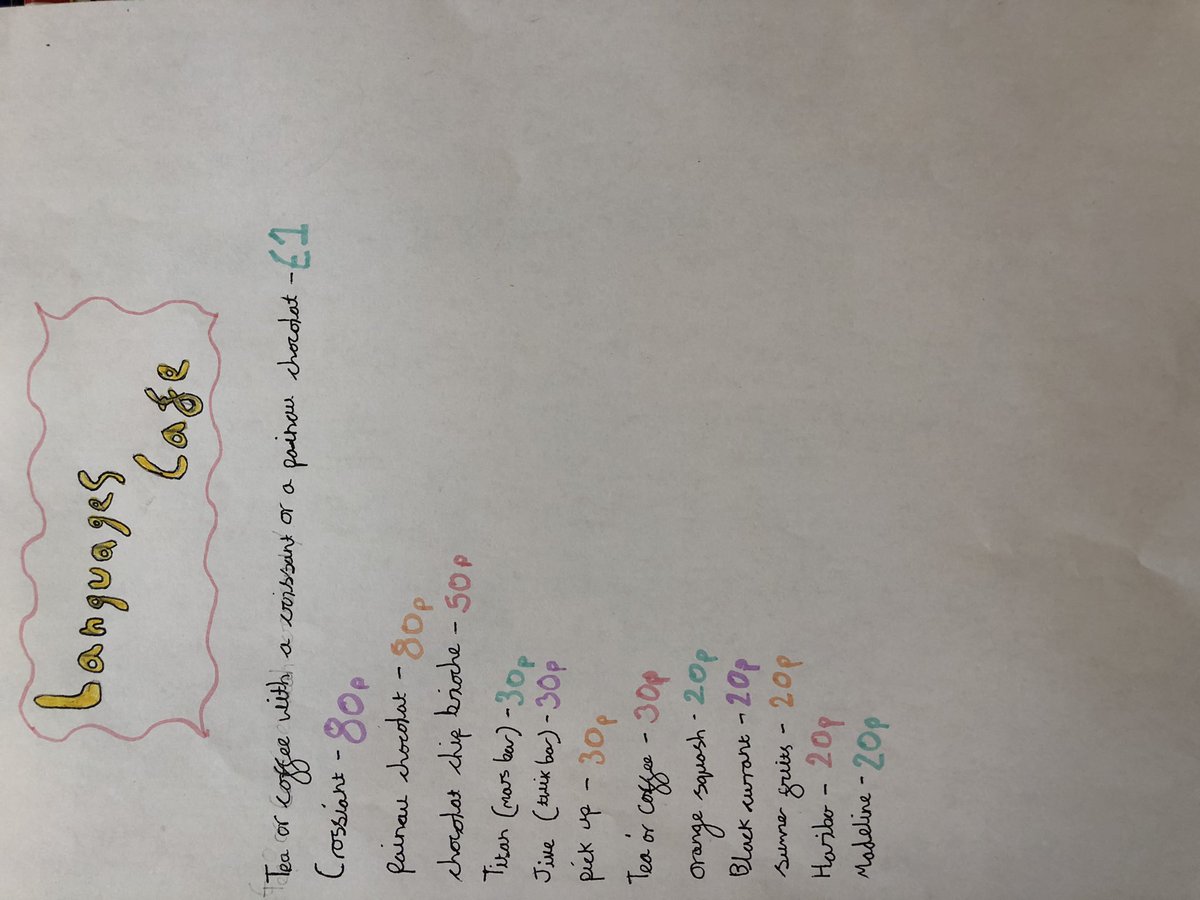 Languages
Cafe
Tea or coffee with a croissant or a painau chocolat - £1
Crossiant - 80p
painau chocolat - 80p
chocolat chip brioche - 50p
Titan (mars bar) - 30p
Jive (twix bar) - 30p
pick up - 30p
Tea or coffee - 30p
orange squash - 20p
Black currant - 20p
summer fruits - 20p
Haribo - 20p
Madeline - 20p